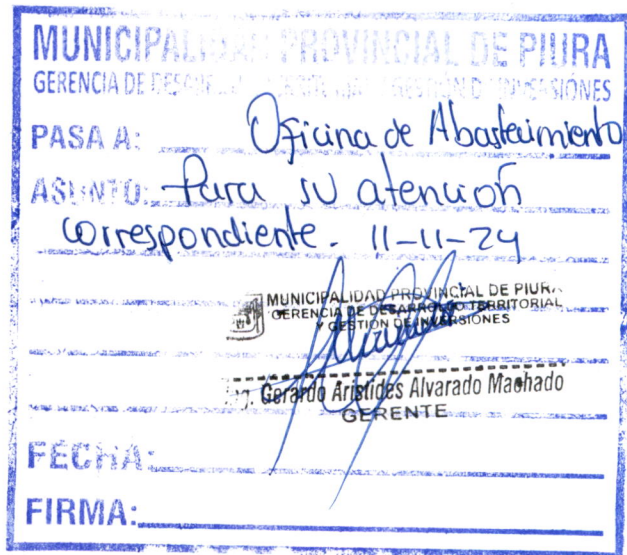 MUNICIPALIDAD PROVINCIAL DE PIURA
GERENCIA DE DESARROLLO TERRITORIAL Y GESTIÓN DE INVERSIONES
PASA A: Oficina de Abastecimiento
ASUNTO: Para su atención
correspondiente. 11-11-24
MUNICIPALIDAD PROVINCIAL DE PIURA
GERENCIA DE DESARROLLO TERRITORIAL
Y GESTIÓN DE INVERSIONES
Gerardo Arístides Alvarado Machado
GERENTE
FECHA:
FIRMA: